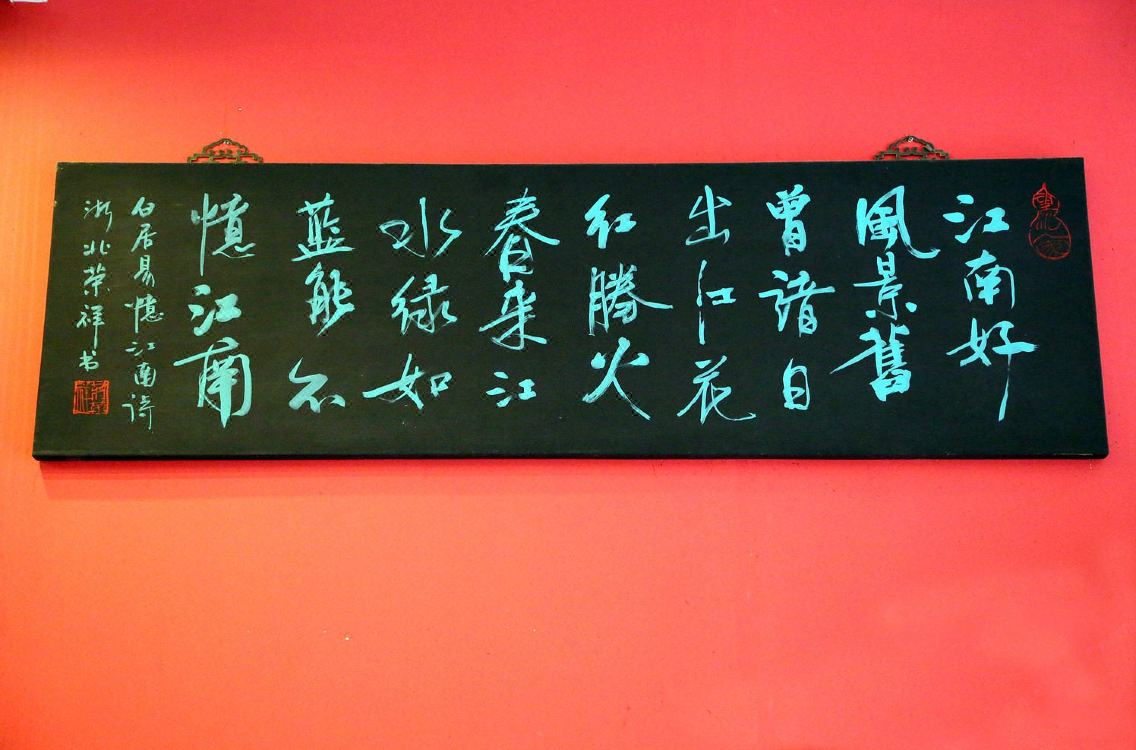 江南好
風景舊
曾諳日
出江花
紅勝火
春来江
水绿如
蓝能不
憶江南
白居易憶江南诗
浙北荣祥书